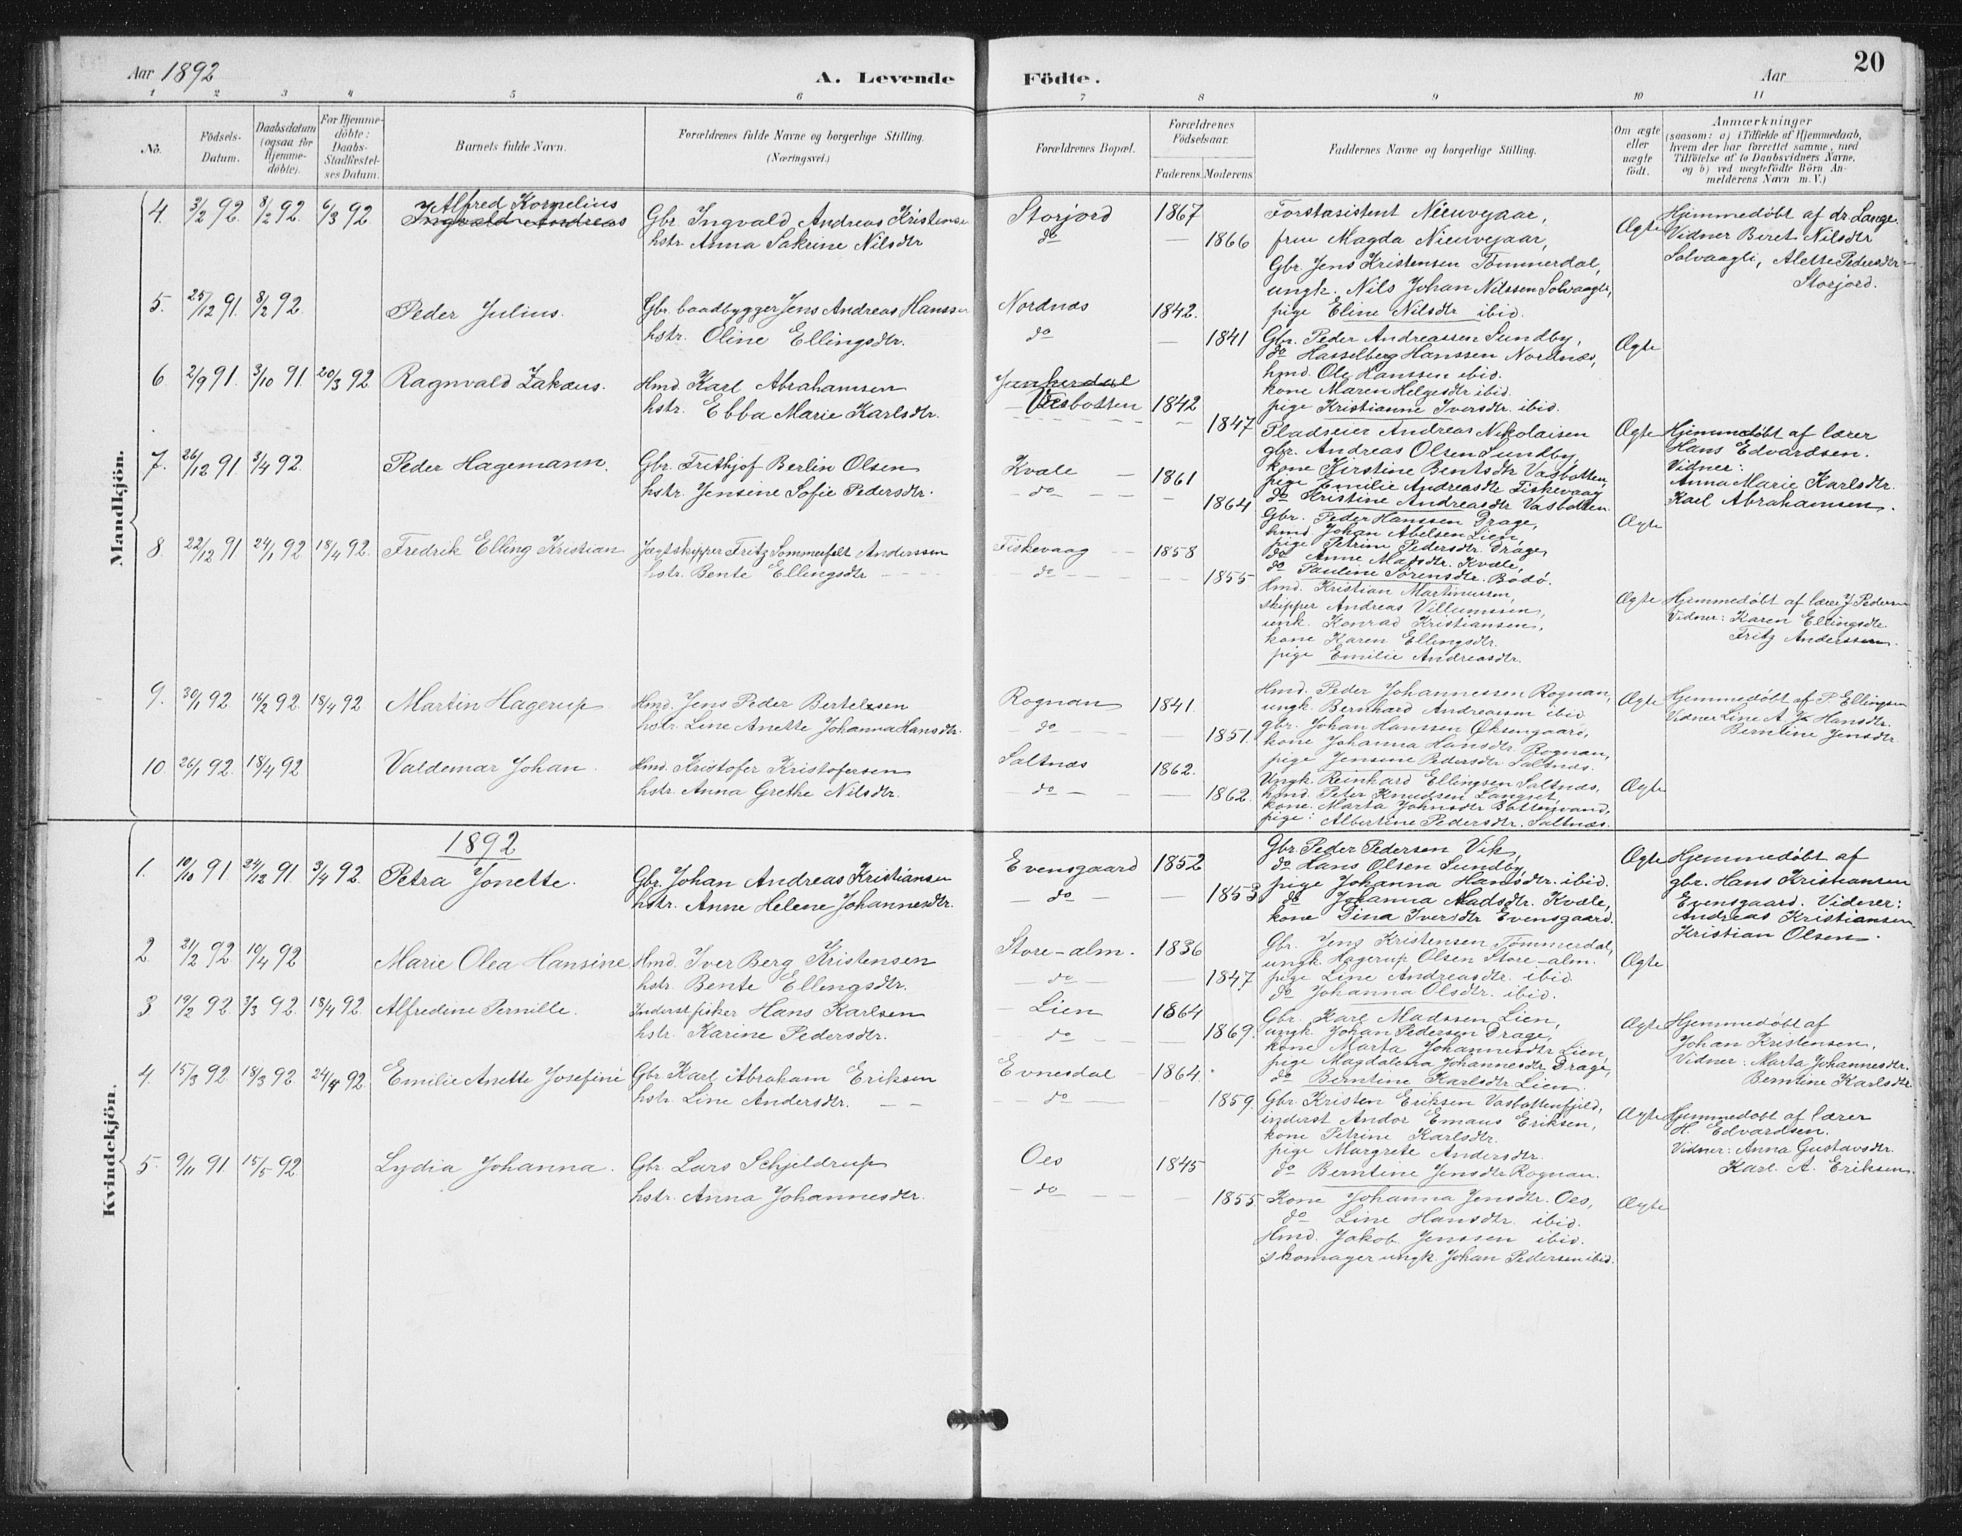 Aar 1892
A. Levende Födte.
Aar
20
1 2 3 4 5 6 7 8 9 10 11
No.
Födsels-Datum.
Daabsdatum (ogsaa for Hjemme-döbte).
For Hjemme-döbte: Daabs-Stadfæstel-ses Datum.
Barnets fulde Navn.
Forældrenes fulde Navne og borgerlige Stilling.
(Næringsvei.)
Forældrenes Bopæl.
Forældrenes Födselsaar.
Faderens Moderens
Faddernes Navne og borgerlige Stilling.
Om ægte eller uægte födt.
Anmærkninger
(saasom: a) i Tilfælde af Hjemmedaab,
hvem der har forrettet samme, med
Tilföielse af to Daabsvidners Navne,
og b) ved uægtefödte Börn An-
melderens Navn m. V.)
Mandkjön.
4. 3/2 92. 8/2 92. 6/3 92 Alfred Kornelius
Ingvald Andreas
Gbr. Ingvald Andreas Kristense
hstr. Anna Sakrine Nilsdtr
Storjord
do
1867
1866
Forstasistent Nieuwejaar,
frue Magda Nieuwejaar,
Gbr. Jens Kristensen Tömmerdal,
ungk. Nils Johan Nilssen Solvaagli,
pige Eline Nilsdtr ibid.
Ægte
Hjemmedöbt af dr. Lange
Vidner Beret Nilsdtr
Solvaagli, Alette Pedersdtr
Storjord.
5. 25/12 91. 8/2 92. Peder Julius.
Gbr. baadbygger Jens Andreas Hansse
hstr. Oline Ellingsdtr.
Nordnæs
do
1842.
1841
Gbr. Peder Andreassen Sundby,
do Hasselberg Hanssen Nordnæs,
hmd. Ole Hanssen ibid.
kone Maren Helgesdtr ibid.
pige Kristianne Iversdtr. ibid.
Ægte
6 2/9 91. 3/10 91 20/3 92 Ragnvald Zakæus.
Hmd. Karl Abrahamsen
hstr. Ebba Marie Karlsdtr.
Junkerdal
Vasbotten
1842
1847
Pladseier Andreas Nikolaisen
gbr. Andreas Olsen Sundby,
kone Kirstine Bentsdtr Vasbotten,
pige Emilie Andreasdtr Fiskevaag
do Kristine Andreasdtr Vasbotten.
Ægte
Hjemmedöbt af lærer
Hans Edvardsen.
Vidner:
Anna Marie Karlsdtr.
Karl Abrahamsen.
7. 26/12 91 3/4 92. Peder Hagemann.
Gbr. Frithjof Berlin Olsen
hstr. Jensine Sofie Pedersdtr.
Kvale
do
1861
1864
Gbr. Peder Hanssen Drage,
hmd Johan Abelsen Lien,
pige Petrine Pedersdtr. Drage,
do Anne Madsdtr. Kvale,
do Pauline Sörensdtr. Bodö.
Ægte
8. 22/12 91 24/1 92 18/4 92. Fredrik Elling Kristian
Jægtskipper Fritz Sommerfelt Anderssen
hstr. Bente Ellingsdtr
Fiskevaag
do
1858
1855
Hmd. Kristian Martinussen,
skipper Andreas Villumssen,
unk. Konrad Kristiansen,
kone Karen Ellingsdtr.
pige Emilie Andreasdtr.
Ægte
Hjemmedöbt af lærer J Pedersen
Vidner: Karen Ellingsdtr.
Fritz Anderssen.
9. 30/1 92 16/2 92 18/4 92 Martin Hagerup
Hmd. Jens Peder Bertelssen
hstr. Line Anette Johanna Hansdtr.
Rognan
do
1841.
1851.
Hmd. Peder Johannessen Rognan,
ungk. Bernhard Andreassen ibid
gbr. Johan Hanssen Öksengaard,
kone Johanna Hansdtr. Rognan,
pige Jensine Pedersdtr Saltnæs.
Ægte
Hjemmedöbt af P. Ellingsen
Vidner Line A. J. Hansdtr.
Berntine Jensdtr
10. 26/1 92 18/4 92 Valdemar Johan.
Hmd. Kristofer Kristofersen
hstr. Anna Grethe Nilsdtr.
Saltnæs
do
1862.
1862.
Ungk. Reinhard Ellingsen Saltnæs,
hmd. Peter Knudsen Langset,
kone. Marta Johnsdtr Bottenvand,
pige: Albertine Pedersdtr. Saltnæs.
Ægte
Kvindekjön.
1892
1. 10/10 91 24/12 91. 3/4 92. Petra Jonette.
Gbr. Johan Andreas Kristiansen
hstr. Anne Helene Johannesdtr.
Evensgaard
do
1852
1853
Gbr Peder Pedersen Vik,
do Hans Olsen Sundby,
pige Johanna Hansdtr. ibid.
do Johanna Madsdtr. Kvale,
kone Dina Iversdtr Evensgaard.
Ægte
Hjemmedöbt af
gbr. Hans Kristiansen
Evensgaard. Vidner:
Andreas Kristiansen
Kristian Olsen.
2 21/2 92 10/4 92 Marie Olea Hansine
Hmd. Iver Berg Kristensen
hstr. Bente Ellingsdtr.
Store-alm.
do
1836
1847
Gbr. Jens Kristensen Tömmerdal,
ungk. Hagerup Olsen Store-alm.
pige Line Andreasdtr. ibid.
do Johanna Olsdtr. ibid.
Ægte
3 19/2 92 3/3 92 18/4 92 Alfredine Pernille.
Inderst fisker Hans Karlsen
hstr. Karine Pedersdtr.
Lien
do
1864
1869.
Gbr. Karl Madssen Lien,
ungk. Johan Pedersen Drage,
kone Marta Johannesdtr Lien,
pige Magdalena Johannesdtr Drage,
do Berntine Karlsdtr Lien.
Ægte
Hjemmedöbt af
Johan Kristensen,
Vidner: Marta Johannesdtr.
Berntine Karlsdtr
4. 15/3 92 18/3 92 24/4 92 Emilie Anette Josefine
Gbr Karl Abraham Eriksen
hstr. Line Andersdtr.
Evnesdal
do
1864.
1859
Gbr. Kristen Eriksen Vasbottenfjeld,
inderst Andor Emaus Eriksen,
kone Petrine Karlsdtr.
pige Margrete Andersdtr.
do Berntine Jensdtr Rognan.
Ægte
Hjemmedöbt af lærer
H. Edvardsen.
Vidner: Anna Gustavsdtr.
Karl A. Eriksen.
5. 9/11 91 15/5 92 Lydia Johanna.
Gbr Lars Schjeldrup
hstr. Anna Johannesdtr.
Oes
do
1845
1855
Kone Johanna Jensdtr. Oes,
do Line Hansdtr. ibid.
Hmd. Jakob Jenssen ibid.
skomager ungk. Johan Pedersen ibid.
Ægte